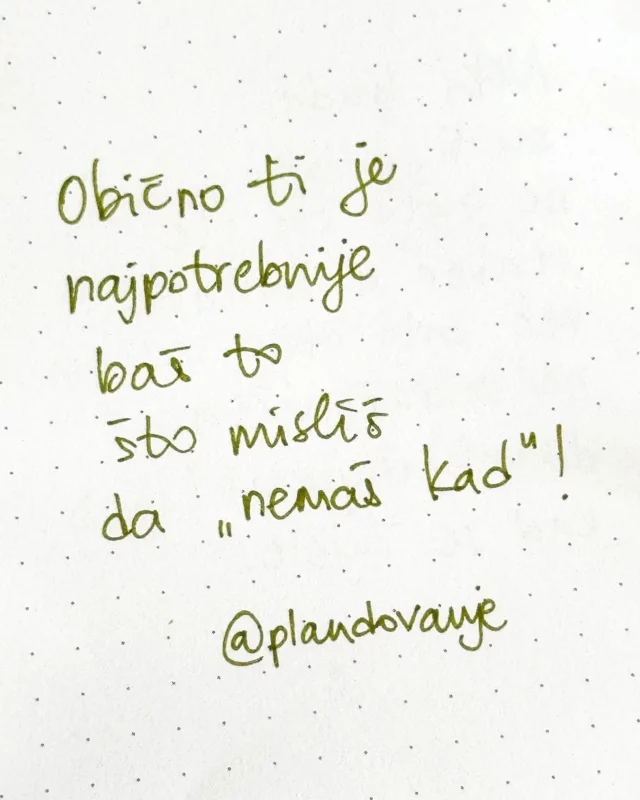 Obično ti je
najpotrebnije
baš to
što misliš
da „nemaš kad“!
@plandovanje